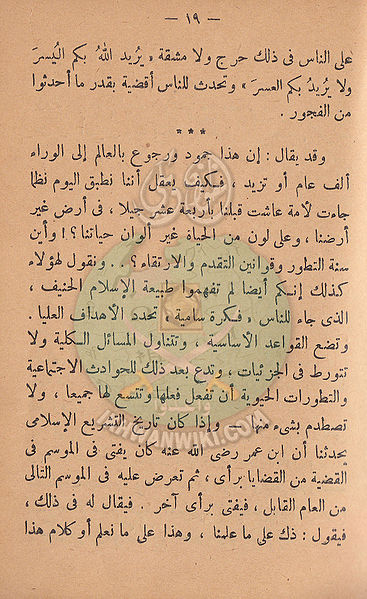 — ١٩ —
على الناس فى ذلك حرج ولا مشقة « يُريد اللهُ بكم اليُسرَ
ولا يُريدُ بكم العسرَ » وتحدث للناس أقضية بقدر ما أحدثوا
من الفجور .
***
وقد يقال : إن هذا جمود ورجوع بالعالم إلى الوراء
ألف عام أو تزيد ، فـكيف يعقل أننا نطبق اليوم نظما
جاءت لأمة عاشت قبلنا بأربعة عشر جيلا ، فى أرض غير
أرضنا ، وعلى لون من الحياة غير ألوان حياتنا ؟ ! وأين
سنة التطور وقوانين التقدم والارتقاء ؟ . . ونقول لهؤلاء
كذلك إنـكم أيضا لم تفهموا طبيعة الإسلام الحنيف ،
الذى جاء للناس فـكرة سامية ، تحدد الأهداف العليا .
وتضع القواعد الأساسية ، وتتناول المسائل الـكلية ولا
تتورط فى الجزئيات ، وتدع بعد ذلك للحوادث الاجتماعية
والتطورات الحيوية أن تفعل فعلها وتتسع لها جميعا ، ولا
تصطدم بشىء منها ـ وإذا كان تاريخ التشريع الإسلامى
يحدثنا أن ابن عمر رضى الله عنه كان يفتى فى الموسم فى
القضية من القضايا برأى ، ثم تعرض عليه فى الموسم التالى
من العام القابل ، فيفتى برأى آخر . فيقال له فى ذلك ،
فيقول : ذك على ما علمنا ، وهذا على ما نعلم أو كلام هذا
IKHWANWIKI.COM